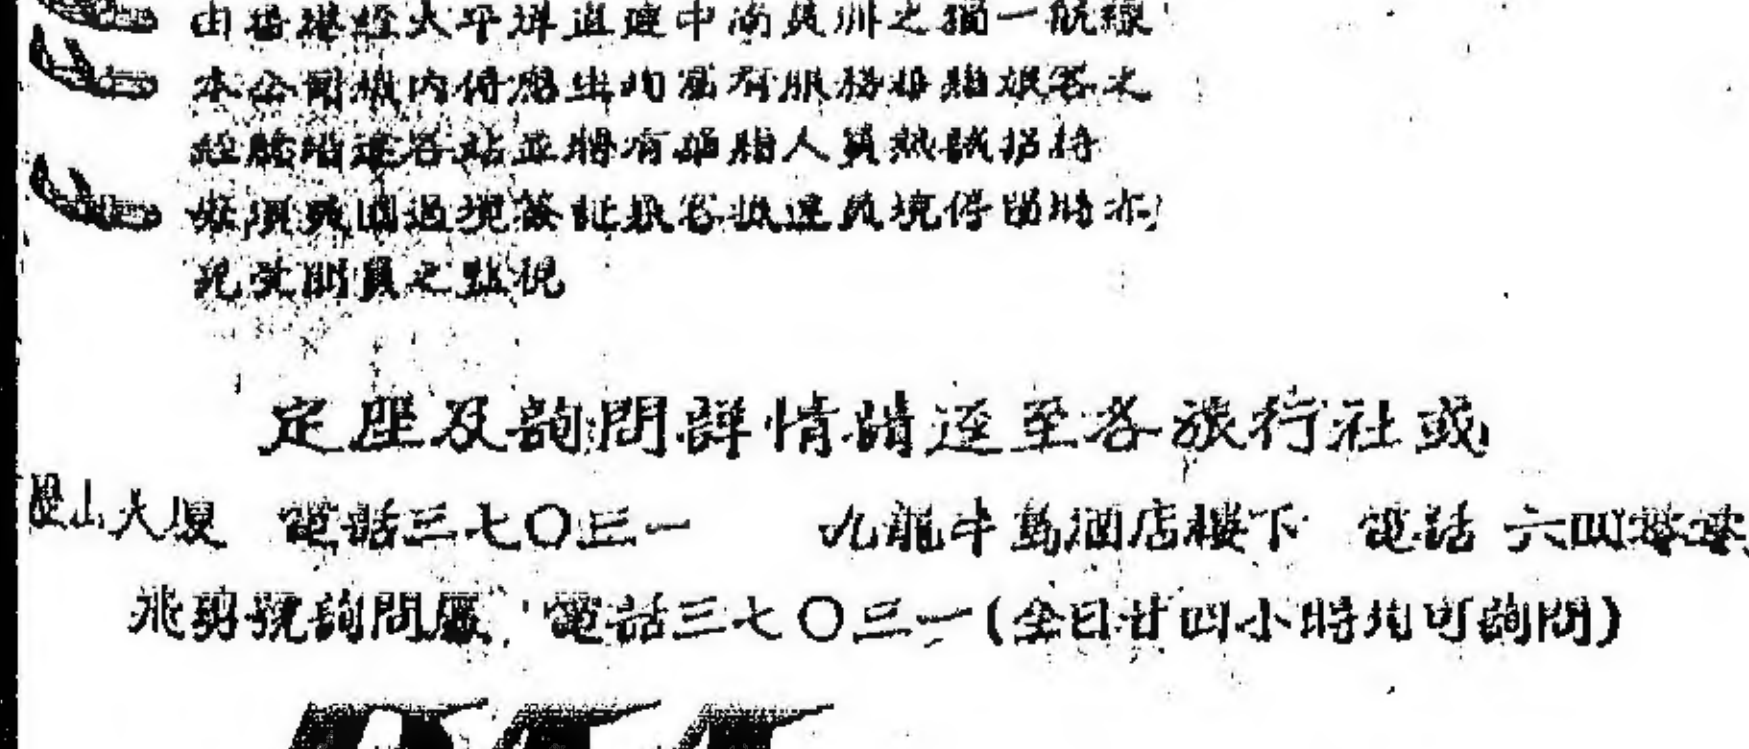 由香港經太平洋直達中南美洲之獨一航線
本公司機內侍應生均富有服務華籍旅客之
經驗沿途各站並將有華籍人員熱誠招待
毋須美國過境簽証旅客抵達美境停留時亦
免受關員之監視
定座及詢問詳情請逕至各旅行社或
歷山大廈 電話三七〇三一 九龍半島酒店樓下 電話 六四零零
飛剪號詢問處 電話三七〇三一(全日廿四小時均可詢問)